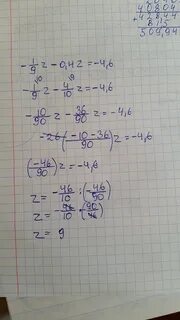 40804
+ 42844
815
509,94
-1/9 z - 0,4z = -4,6
10 9
-1/9 z - 4/10 z = -4,6
-10/90 z - 36/90 z = -4,6
(-10-36/90) z = -4,6
(-46/90) z = -4,6
z = -46/10 : (-46/90)
z = -46/10 · (90/46)
z = 9